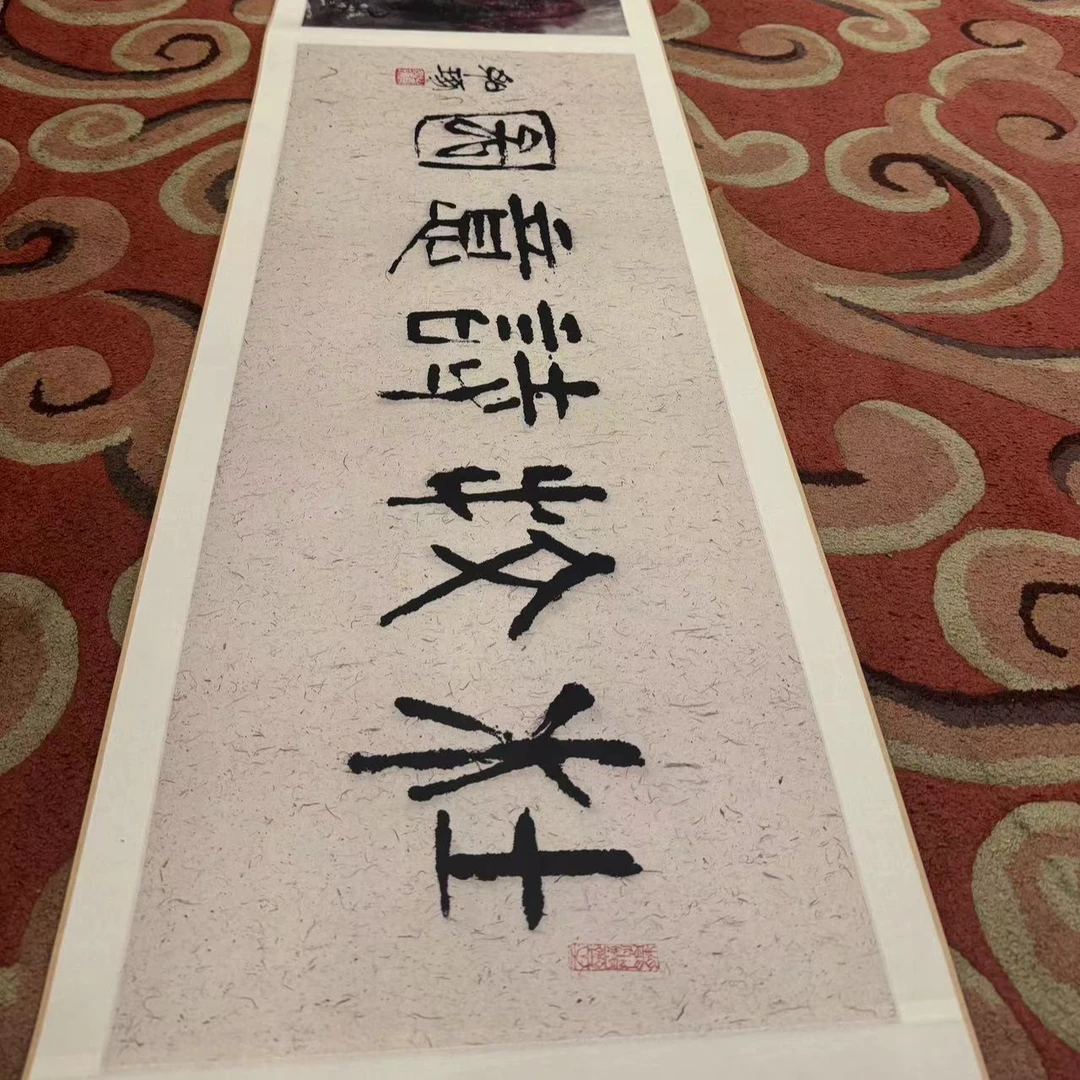 杜牧詩意圖